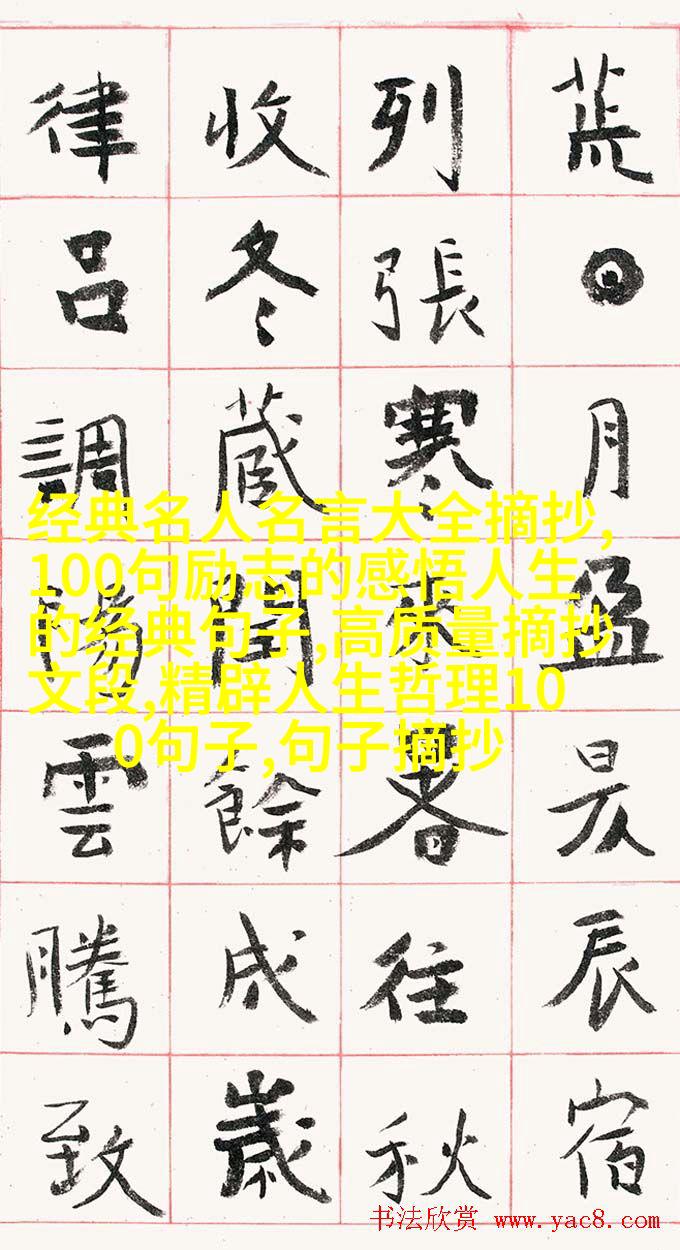 荒日月盈昃辰宿
列張寒來暑往秋
收冬藏閏餘成歲
律呂調陽雲騰致
经典名人名言大全摘抄,
100句励志的感悟人生
的经典句子,高质量摘抄
文段,精辟人生哲理10
0句子,句子摘抄
书法欣赏 www.yac8.com